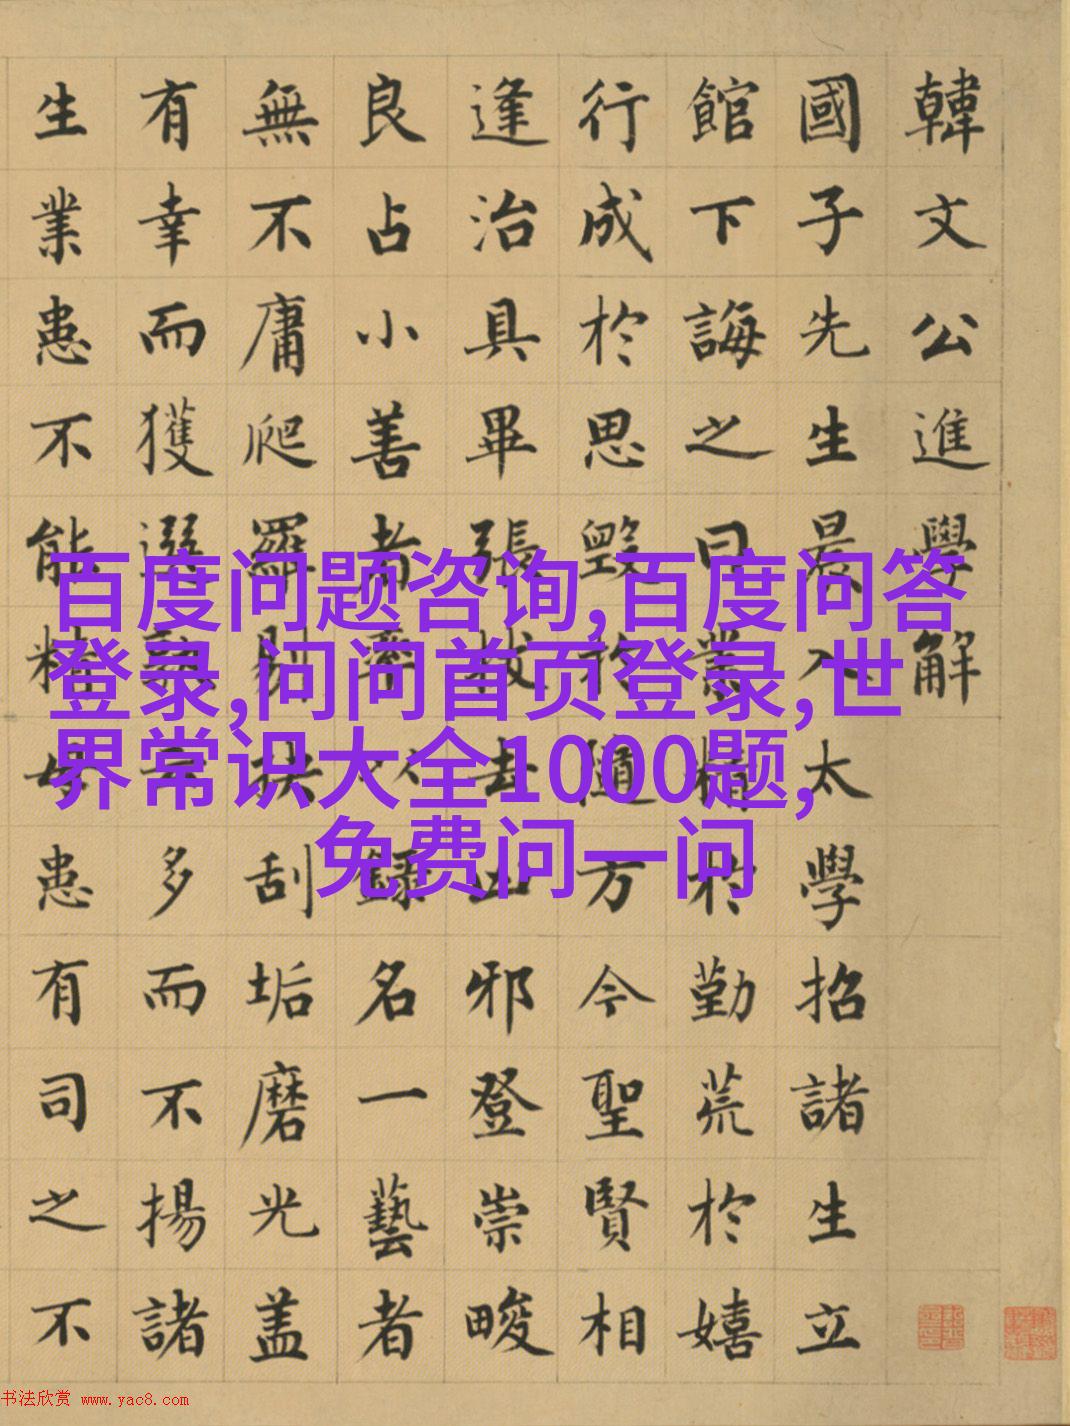 韓文公進學解
國子先生晨入太學招諸生立
館下誨之曰業精於勤荒於嬉
行成於思毀於隨方今聖賢相
逢治具畢張拔去凶邪登崇畯
良占小善者率以錄名一藝者
無不庸爬羅剔抉刮垢磨光盖
有幸而獲選孰云多而不揚諸
生業患不能精毋患有司之不
百度问题咨询,百度问答
登录,问问首页登录,世
界常识大全1000题,
免费问一问
书法欣赏 www.yac8.com